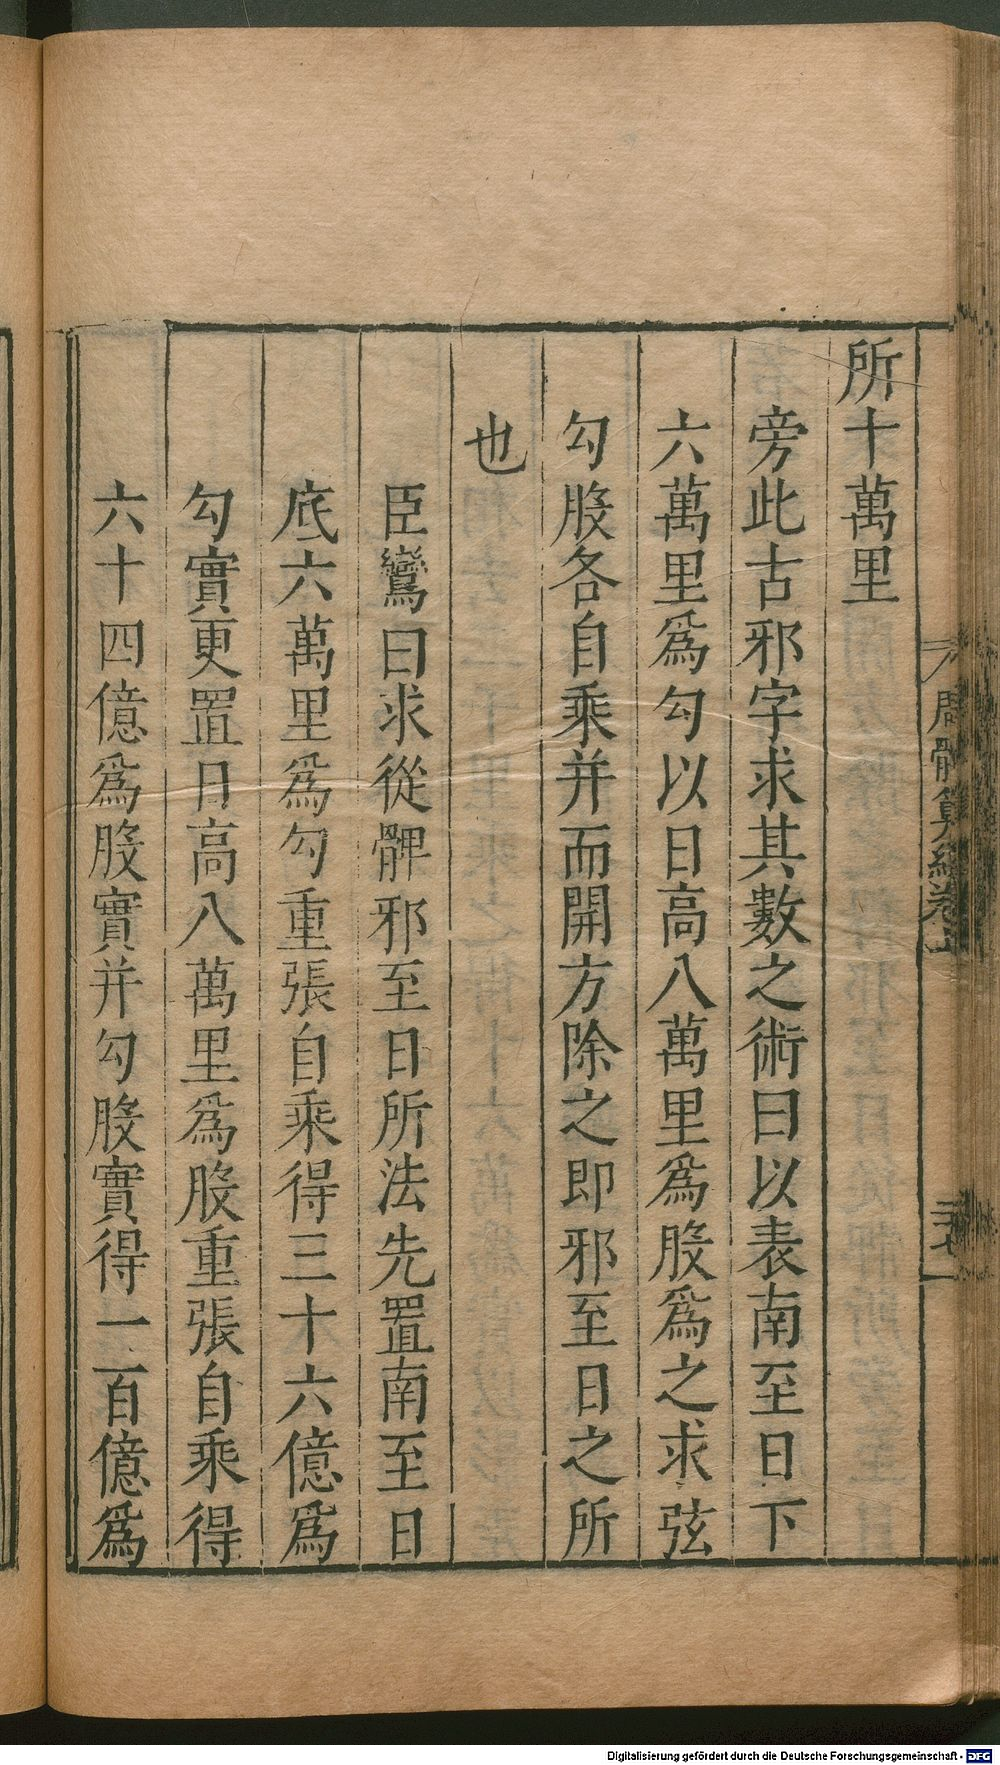 所十萬里
旁此古邪字求其數之術曰以表南至日下
六萬里爲勾以日高八萬里爲股爲之求弦
勾股各自乘并而開方除之即邪至日之所
也
臣鸞曰求從髀邪至日所法先置南至日
底六萬里爲勾重張自乘得三十六億爲
勾實更置日高八萬里爲股重張自乘得
六十四億爲股實并勾股實得一百億爲
周髀算經卷上
Digitalisierung gefördert durch die Deutsche Forschungsgemeinschaft - DFG